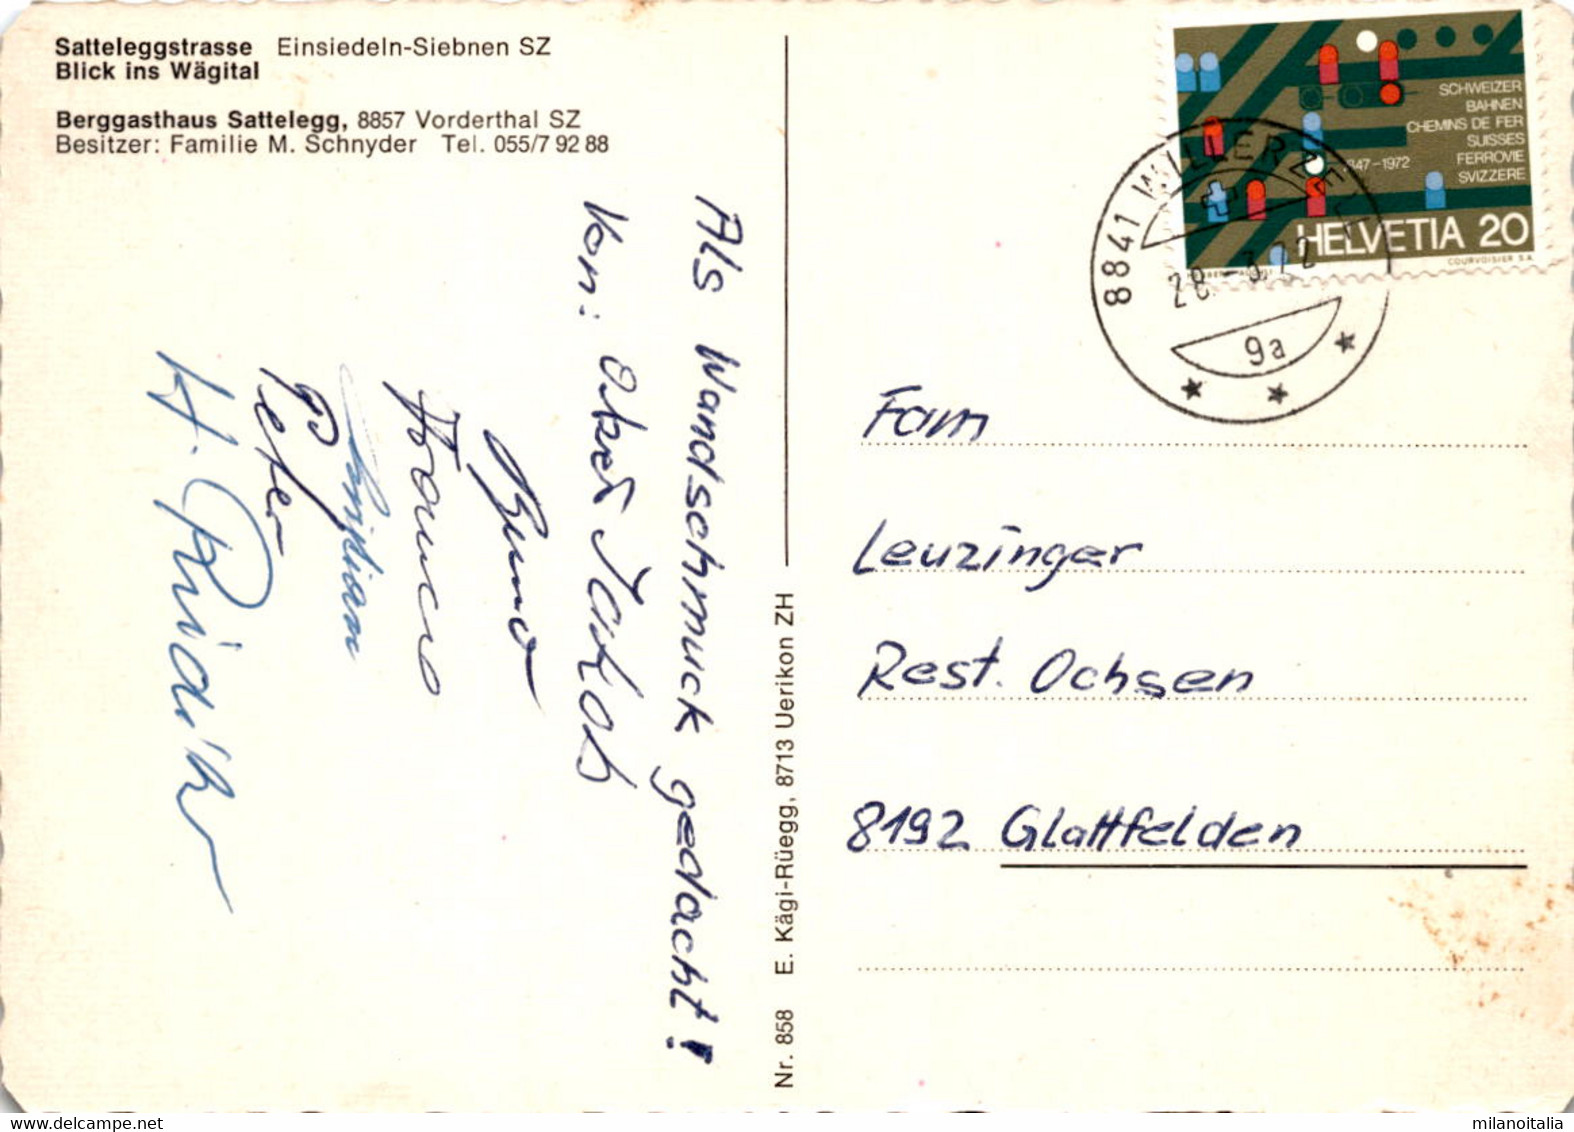 Satteleggstrasse Einsiedeln-Siebnen SZ
Blick ins Wägital
Berggasthaus Sattelegg, 8857 Vorderthal SZ
Besitzer: Familie M. Schnyder Tel. 055/7 92 88
Als Wandschmuck gedacht!
Von:
Jakob
Bruno
Peter
Nr. 858 E. Kägi-Rüegg, 8713 Uerikon ZH
SCHWEIZER
BAHNEN
CHEMINS DE FER
SUISSES
FERROVIE
SVIZZERE
1847-1972
HELVETIA 20
COURVOISIER S.A.
8841 WILLERZELL
28.-3.72
9a
Fam
Leuzinger
Rest. Ochsen
8192 Glattfelden
milanoitalia